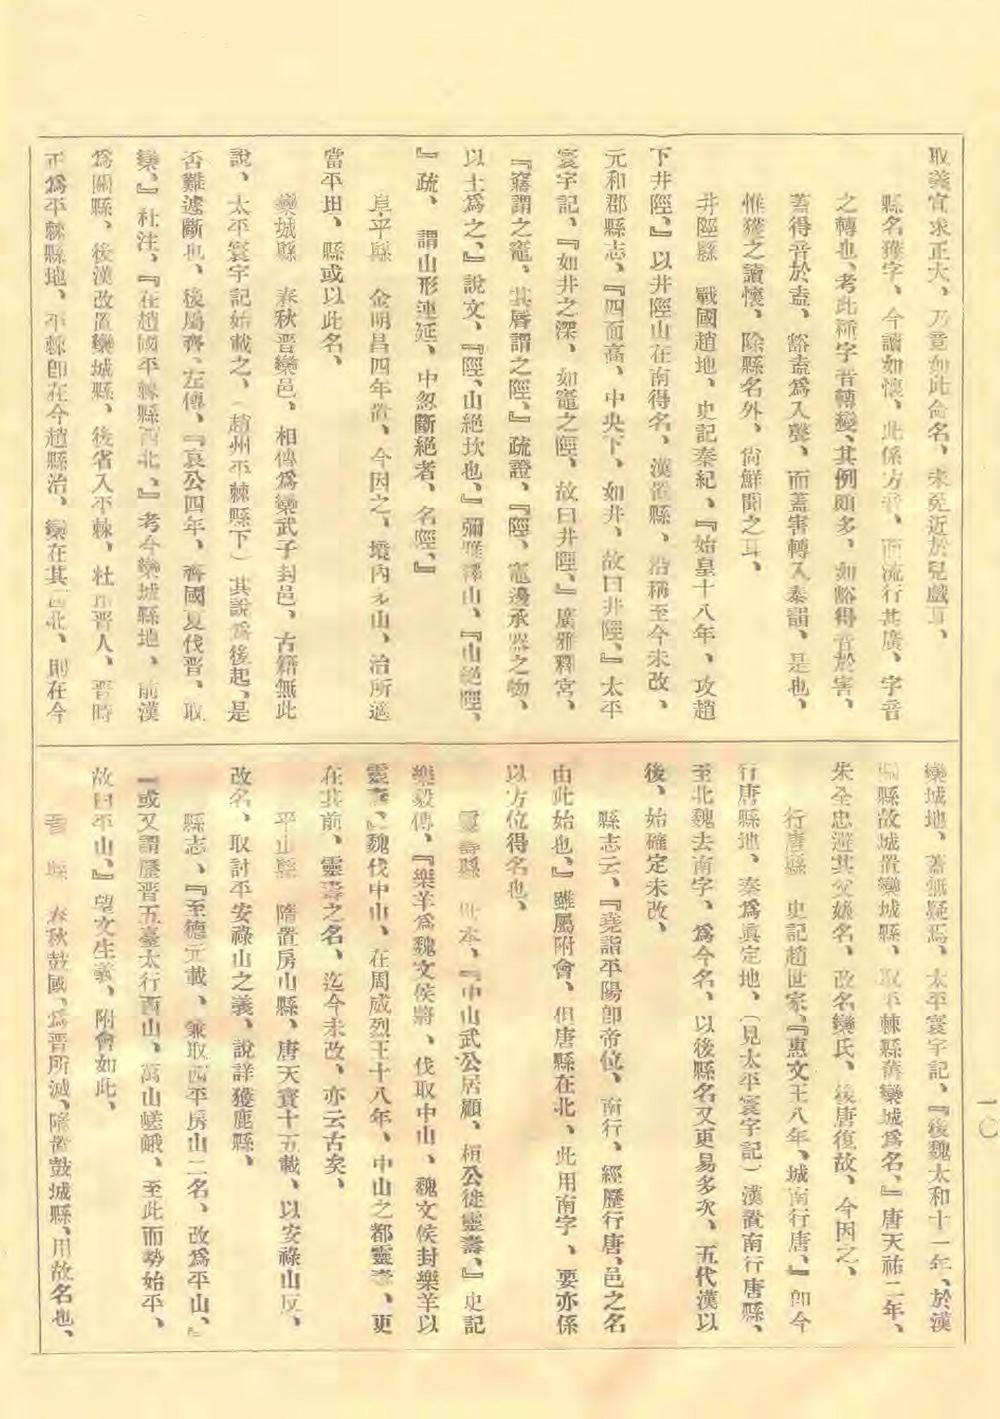 取義宜求正大、乃竟如此命名、未免近於兒戲耳、
縣名獲字、今讀如懷、此係方音、而流行甚廣、字音
之轉也、考此種字音轉變、其例頗多、如豁得音於害、
蓋得音於盍、豁盍爲入聲、而蓋害轉入泰韻、是也、
惟獲之讀懷、除縣名外、尙鮮聞之耳、
井陘縣　戰國趙地、史記秦紀、『始皇十八年、攻趙
下井陘、』以井陘山在南得名、漢置縣、沿稱至今未改、
元和郡縣志、『四面高、中央下、如井、故曰井陘、』太平
寰宇記、『如井之深、如竈之陘、故曰井陘、』廣雅釋宮、
『窹謂之竈、其脣謂之陘、』疏證、『陘、竈邊承器之物、
以土爲之、』說文、『陘、山絕坎也、』爾雅釋山、『山絕陘、
』疏、謂山形連延、中忽斷絕者、名陘、』
阜平縣　金明昌四年置、今因之、境內多山、治所適
當平坦、縣或以此名、
欒城縣　春秋晉欒邑、相傳爲欒武子封邑、古籍無此
說、太平寰宇記始載之、（趙州平棘縣下）其說爲後起、是
否難遽斷也、後屬齊、左傳、『哀公四年、齊國夏伐晉、取
欒、』杜注、『在趙國平棘縣西北、』考今欒城縣地、前漢
爲關縣、後漢改置欒城縣、後省入平棘、杜預晉人、晉時
正爲平棘縣地、平棘卽在今趙縣治、欒在其西北、則在今
欒城地、蓋無疑焉、太平寰宇記、『後魏太和十一年、於漢
關縣故城置欒城縣、取平棘縣舊欒城爲名、』唐天祐二年、
朱全忠避其父嫌名、改名欒氏、後唐復故、今因之、
行唐縣　史記趙世家、『惠文王八年、城南行唐、』卽今
行唐縣地、秦爲眞定地、（見太平寰宇記）漢置南行唐縣、
至北魏去南字、爲今名、以後縣名又更易多次、五代漢以
後、始確定未改、
縣志云、『堯詣平陽卽帝位、南行、經歷行唐、邑之名
由此始也、』雖屬附會、但唐縣在北、此用南字、要亦係
以方位得名也、
靈壽縣　世本、『中山武公居顧、桓公徙靈壽、』史記
樂毅傳、『樂羊爲魏文侯將、伐取中山、魏文侯封樂羊以
靈壽、』魏伐中山、在周威烈王十八年、中山之都靈壽、更
在其前、靈壽之名、迄今未改、亦云古矣、
平山縣　隋置房山縣、唐天寶十五載、以安祿山反、
改名、取討平安祿山之義、說詳獲鹿縣、
縣志、『至德元載、兼取西平房山二名、改爲平山、』
『或又謂歷晉五臺太行西山、萬山嵯峨、至此而勢始平、
故曰平山、』望文生義、附會如此、
晉　縣　春秋鼓國、爲晉所滅、隋置鼓城縣、用故名也、
一〇